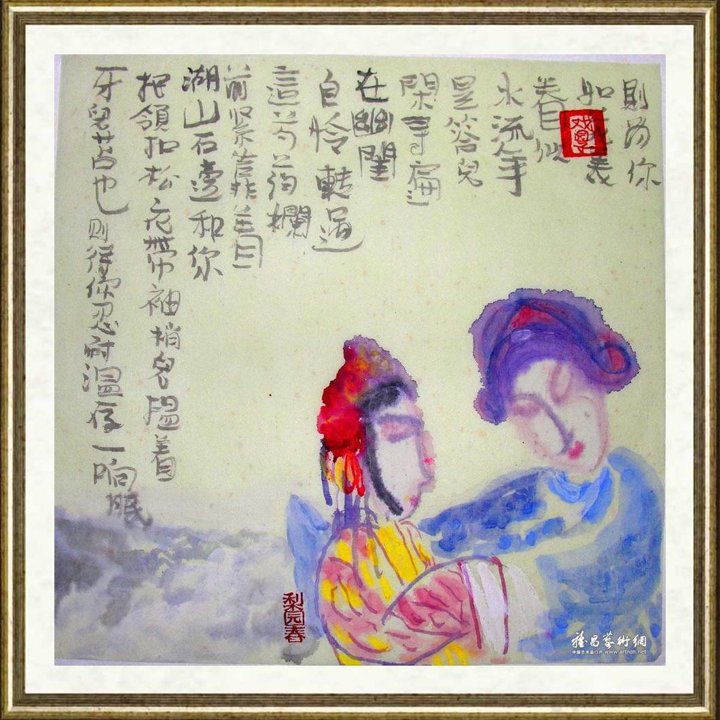 則为你
如美
眷似
水流年
是答兒
閑寻遍
在幽閨
自怜轉過
這芍欄
前紧靠着
湖山石邊和你
把領扣松衣帶袖梢兒揾着
牙兒苫也則待你忍耐温存一晌眠
梨园春
雅昌藝術網
www.artron.net